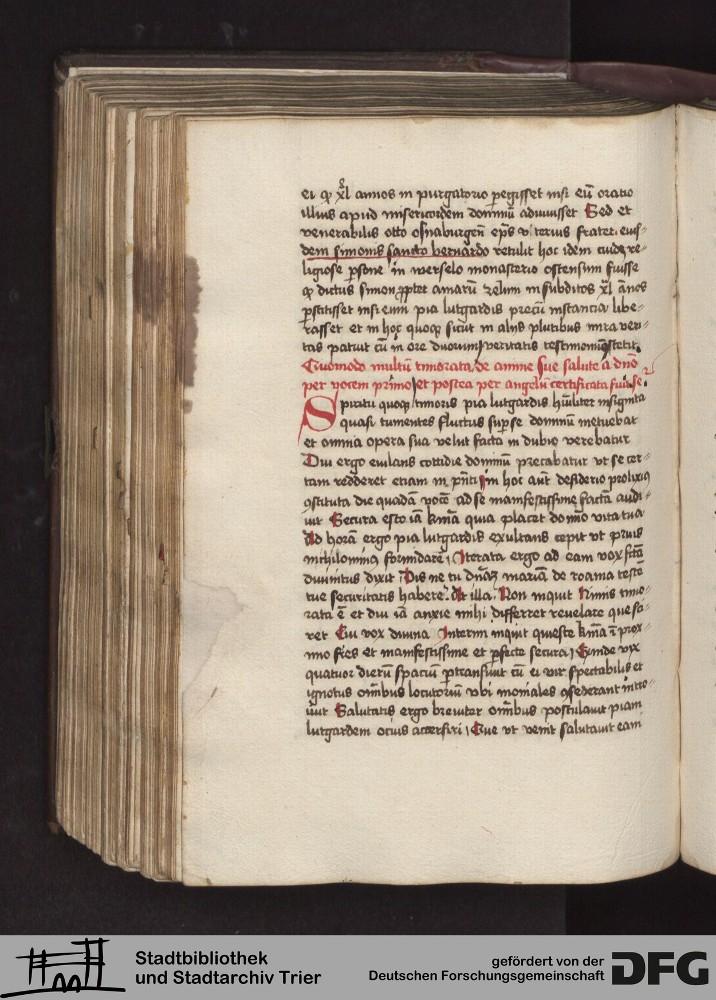 ei qꝫ xl annos in purgatorio pegisset nisi eū oratio
illius apud misericordem dominū adiuuisset Sed et
venerabilis otto osnaburgen̄ ep̄s vlterius frater eius-
dem simonis sancto bernardo retulit hoc idem cuidꝫ re-
ligiose psone in werselo monasterio ostensum fuisse
qꝫ dictus simon ꝓpter amarū zelum in subditos xl ānos
pstitisset nisi eum pia lutgardis precū instancia libe-
rasset et in hoc quoqꝫ sicut in aliis pluribus mira veri-
tas patuit cū in ore duorum veritatis testimoniū stetit
Quomodo multū timorata de anime sue salute a dn̄o
per vocem primo et postea per angelū certificata fuisse
Spiritu quoqꝫ timoris pia lutgardis hūiliter insignita
quasi tumentes fluctus sup se dominū metuebat
et omnia opera sua velut facta in dubio verebatur
Diu ergo eiulans cottidie dominū precabatur vt se cer-
tam redderet etiam in pn̄ti In hoc aūt desiderio prolixiꝰ
ꝯstituta die quadā vocē ad se manifestissime factā audi-
uit Secura esto iā kīna quia placet domīo vita tua
Ad horā ergo pia lutgardis exultans cepit vt prius
nichilominꝰ formidare Iterata ergo ad eam vox fctā
diuinitus dixit Vis ne tu dn̄aꝫ mariam de roania testē
tue securitatis habere At illa Non inquit Nimis timo-
rata ē et diu iā anxie mihi differret reuelare que sci-
ret Cui vox diuina Interim inquit quiesce kīna ī prox-
imo fies et manifestissime et pfecte secura Exinde vix
quatuor dierū spaciū ptransiuit cū ei vir spectabilis et
ignotus om̄ibus locutoriū vbi moniales ꝯsederant intro-
iuit Salutatis ergo breuiter om̄ibus postulauit piam
lutgardem ocius accersiri Que vt venit salutauit eam
Stadtbibliothek
und Stadtarchiv Trier
gefördert von der
Deutschen Forschungsgemeinschaft
DFG